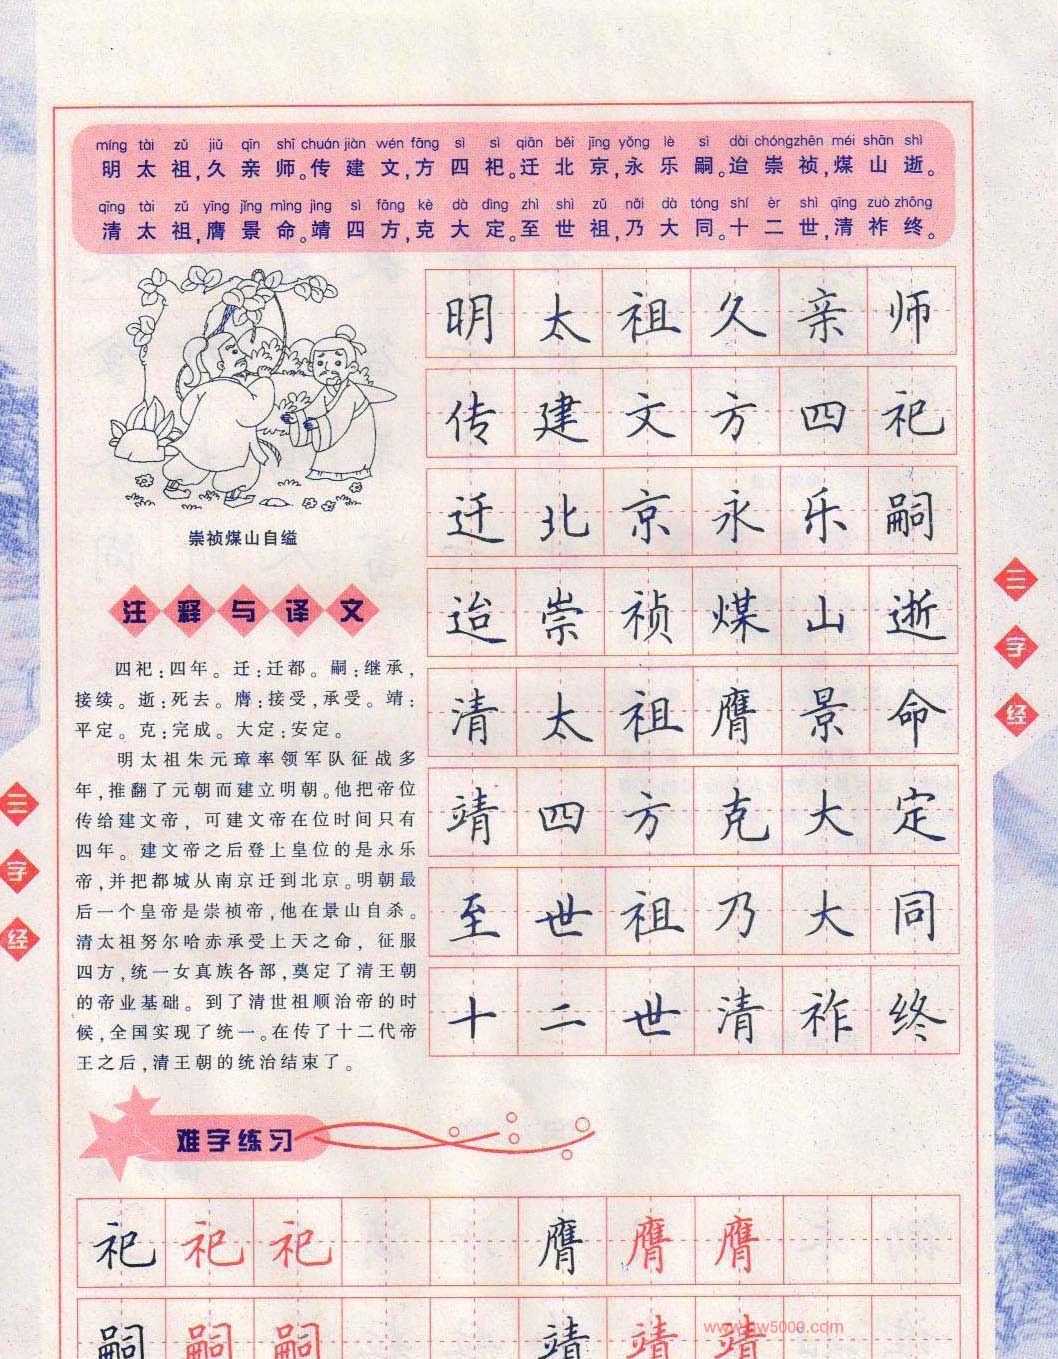 míng tài zǔ jiǔ qīn shī chuán jiàn wén fāng sì sì qiān běi jīng yǒng lè sì dài chóng zhēn méi shān shì
明太祖,久亲师。传建文,方四祀。迁北京,永乐嗣。迨崇祯,煤山逝。
qīng tài zǔ yīng jǐng mìng jìng sì fāng kè dà dìng zhì shì zǔ nǎi dà tóng shí èr shì qīng zuò zhōng
清太祖,膺景命。靖四方,克大定。至世祖,乃大同。十二世,清祚终。
崇祯煤山自缢
注释与译文
四祀:四年。迁:迁都。嗣:继承,
接续。逝:死去。膺:接受,承受。靖:
平定。克:完成。大定:安定。
明太祖朱元璋率领军队征战多
年,推翻了元朝而建立明朝。他把帝位
传给建文帝,可建文帝在位时间只有
四年。建文帝之后登上皇位的是永乐
帝,并把都城从南京迁到北京。明朝最
后一个皇帝是崇祯帝,他在景山自杀。
清太祖努尔哈赤承受上天之命,征服
四方,统一女真族各部,奠定了清王朝
的帝业基础。到了清世祖顺治帝的时
候,全国实现了统一。在传了十二代帝
王之后,清王朝的统治结束了。
明太祖久亲师
传建文方四祀
迁北京永乐嗣
迨崇祯煤山逝
清太祖膺景命
靖四方克大定
至世祖乃大同
十二世清祚终
三字经
三字经
难字练习
祀祀祀膺膺膺
嗣嗣嗣靖靖靖